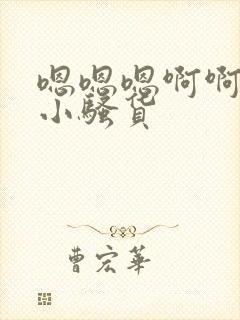 嗯嗯嗯啊啊
小骚货
曹宏華